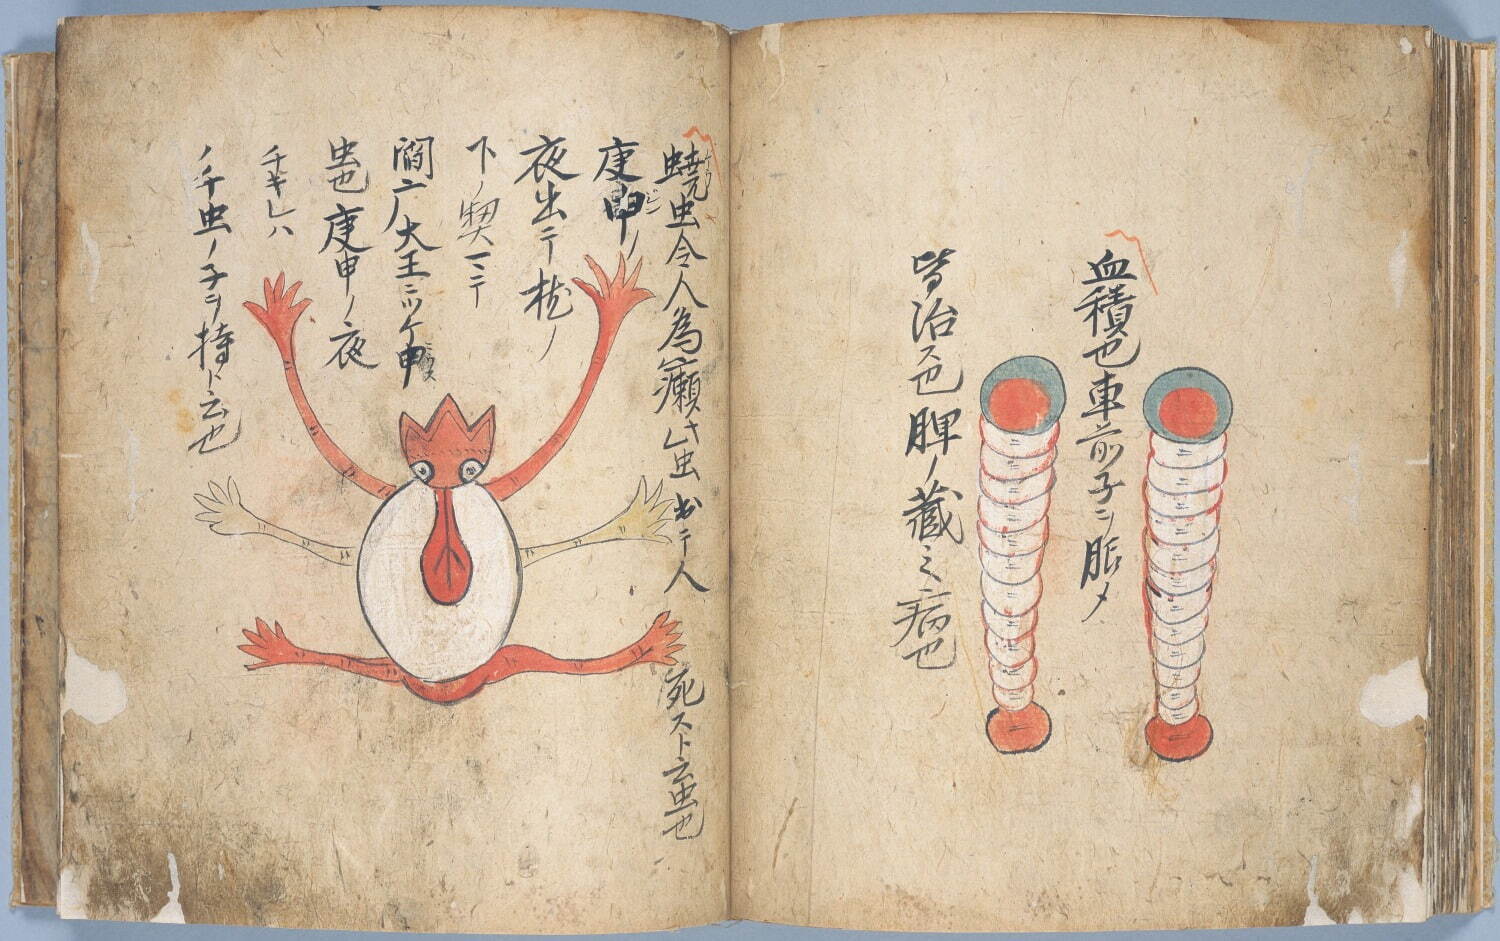 血積也車前子ヲ脈メ
皆治ス也脾ノ蔵ミ病也
蟯虫令人為癩サレ虫出テ人
死スト云虫也
庚申ノ
夜出テ枕ノ
下ノ契マニテ
閻广大王ニツケ申
虫也庚申ノ夜
チキレハ
ノチ虫ノ子ヲ持ト云也